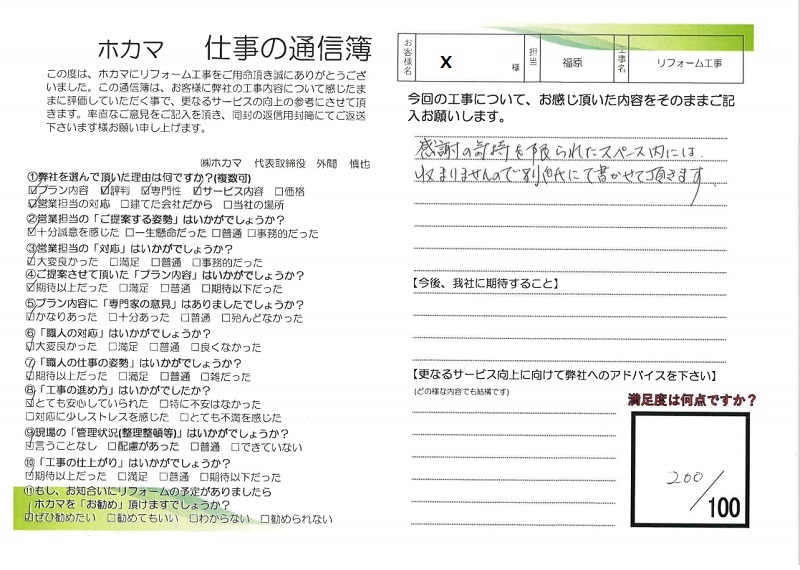 ホカマ 仕事の通信簿
この度は、ホカマにリフォーム工事をご用命頂き誠にありがとうござ
いました。この通信簿は、お客様に弊社の工事内容について感じたま
まに評価していただく事で、更なるサービスの向上の参考にさせて頂
きます。率直なご意見をご記入を頂き、同封の返信用封筒にてご返送
下さいます様お願い申し上げます。
㈱ホカマ 代表取締役 外間 慎也
①弊社を選んで頂いた理由は何ですか?(複数可)
☑プラン内容 ☑評判 ☑専門性 ☑サービス内容 □価格
☑営業担当の対応 □建てた会社だから □当社の場所
②営業担当の「ご提案する姿勢」はいかがでしょうか?
☑十分誠意を感じた □一生懸命だった □普通 □事務的だった
③営業担当の「対応」はいかがでしょうか?
☑大変良かった □満足 □普通 □事務的だった
④ご提案させて頂いた「プラン内容」はいかがでしょうか?
☑期待以上だった □満足 □普通 □期待以下だった
⑤プラン内容に「専門家の意見」はありましたでしょうか?
☑かなりあった □十分あった □普通 □殆んどなかった
⑥「職人の対応」はいかがでしょうか?
☑大変良かった □満足 □普通 □良くなかった
⑦「職人の仕事の姿勢」はいかがでしょうか?
☑期待以上だった □満足 □普通 □雑だった
⑧「工事の進め方」はいかがでしたか?
☑とても安心していられた □特に不安はなかった
□対応に少しストレスを感じた □とても不満を感じた
⑨現場の「管理状況(整理整頓等)」はいかがでしょうか?
☑言うことなし □配慮があった □普通 □できていない
⑩「工事の仕上がり」はいかがでしょうか?
☑期待以上だった □満足 □普通 □期待以下だった
⑪もし、お知合いにリフォームの予定がありましたら
ホカマを「お勧め」頂けますでしょうか?
☑ぜひ勧めたい □勧めてもいい □わからない □勧められない
お客様名 X 様 担当 福原 工事名 リフォーム工事
今回の工事について、お感じ頂いた内容をそのままご記
入お願いします。
感謝の気持を限られたスペース内には
収まりませんので別紙にて書かせて頂きます
【今後、我社に期待すること】
【更なるサービス向上に向けて弊社へのアドバイスを下さい】
(どの様な内容でも結構です)
満足度は何点ですか?
200/100